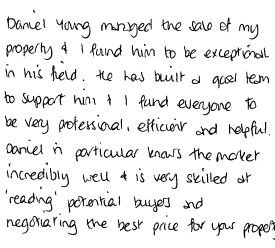 Daniel Young managed the sale of my
property & I found him to be exceptional
in his field. He has built a good team
to support him & I found everyone to
be very professional, efficient and helpful.
Daniel in particular knows the market
incredibly well & is very skilled at
'reading' potential buyers and
negotiating the best price for your